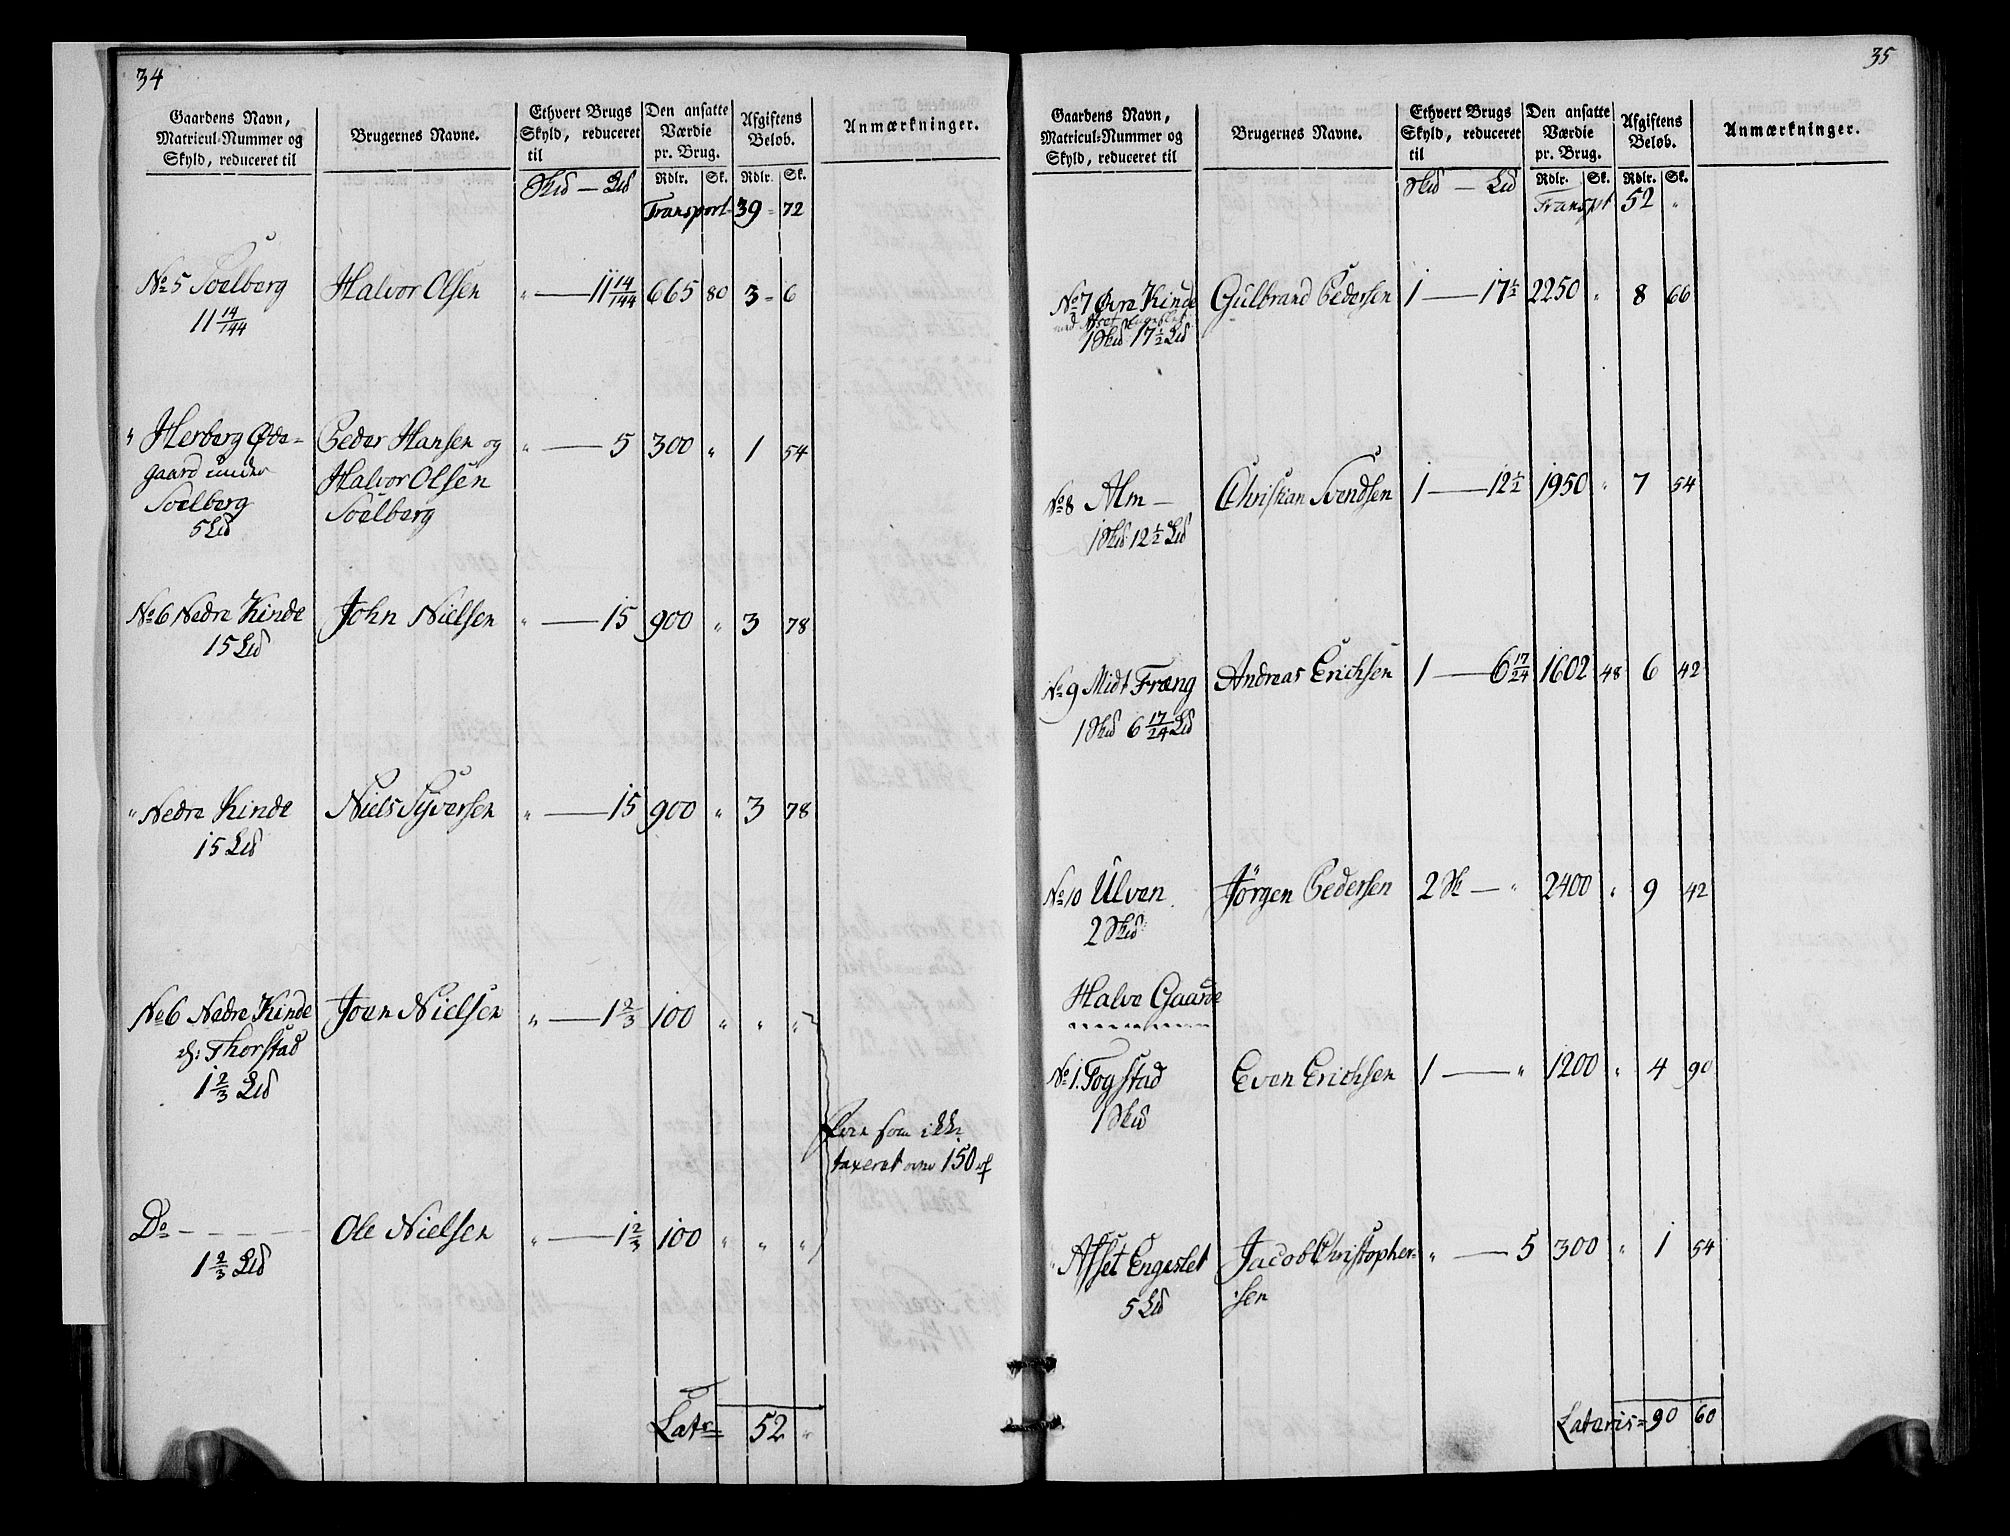 34
Gaardens Navn, Matricul-Nummer og Skyld, reduceret til
Brugernes Navne.
Ethvert Brugs Skyld, reduceret til
Den ansatte Værdie pr. Brug.
Afgiftens Beløb.
Anmærkninger.
Skd — Ld Rdlr. Sk. Rdlr. Sk.
Transport 39 = 72
No 5 Soelberg Halvor Olsen " — 11 14/144 665 80 3 = 6
11 14/144
" Herberg Øde= Peder Hansen og " — 5 300 " 1 54
gaard under Halvor Olsen
Soelberg Soelberg
5 Ld
No 6 Nedre Kinde John Nielsen " — 15 900 " 3 78
15 Ld
" Nedre Kinde Niels Syversen " — 15 900 " 3 78
15 Ld
No 6 Nedre Kinde Joen Nielsen " — 1 2/3 100 " " "
Thorstad
1 2/3 Ld
som ikke
taxeret over 150
Do — — — — Ole Nielsen " — 1 2/3 100 " " "
1 2/3 Ld
Latr= 52 "
35
Gaardens Navn, Matricul-Nummer og Skyld, reduceret til
Brugernes Navne.
Ethvert Brugs Skyld, reduceret til
Den ansatte Værdie pr. Brug.
Afgiftens Beløb.
Anmærkninger.
Skd — Ld Rdlr. Sk. Rdlr. Sk.
Transpt 52 "
No 7 Øvre Kinde Gulbrand Pedersen 1 — 17 1/2 2250 " 8 66
med Afset Engeslet
1 Skd 17 1/2 Ld
No 8 Alm — Christian Svendsen 1 — 12 1/2 1950 " 7 54
1 Skd 12 1/2 Ld
No 9 Midt Fræng Andreas Erichsen 1 — 6 17/24 1602 48 6 42
1 Skd 6 17/24 Ld
No 10 Ulven Jörgen Pedersen 2 Sk — " 2400 " 9 42
2 Skd
Halve Gaarde
No 1. Fogstad Even Erichsen 1 — " 1200 " 4 90
1 Skd
" Afset Engeslet Jacob Christopher= " — 5 300 " 1 54
sen
5 Ld
Lateris = 90 60